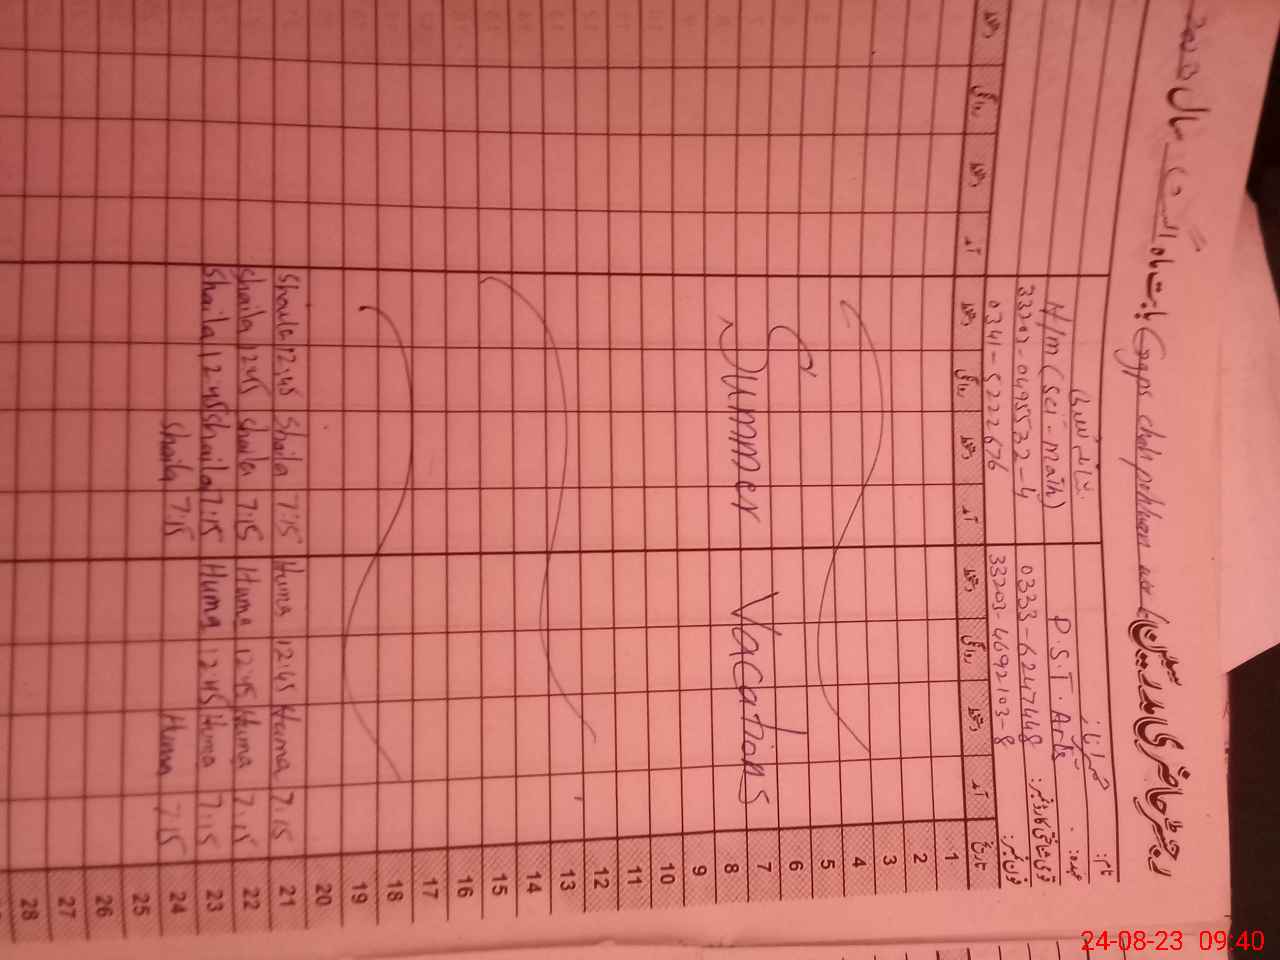 رجسٹر حاضری مدرسین Ggps chak بابت ماہ اگست سال 2023
نام:
عہدہ: P.S.T. Arts
H/m (Sci-math)
قومی شناختی کارڈ نمبر: 0333-6247448
33203-0495532-4
فون نمبر: 33203-4692103-8
0341-5222676
تاریخ آمد دستخط روانگی دستخط آمد دستخط روانگی دستخط آمد دستخط روانگی دستخط
1
2
3
4
5
6
7
8 Summer Vacations
9
10
11
12
13
14
15
16
17
18
19
20
21 7:15 Huma 12:45 Huma 7:15 Shaila 12:45 Shaila
22 7:15 Huma 12:45 Huma 7:15 Shaila 12:45 Shaila
23 7:15 Huma 12:45 Huma 7:15 Shaila 12:45 Shaila
24 7:15 Huma 7:15 Shaila
25
26
27
28
24-08-23 09:40